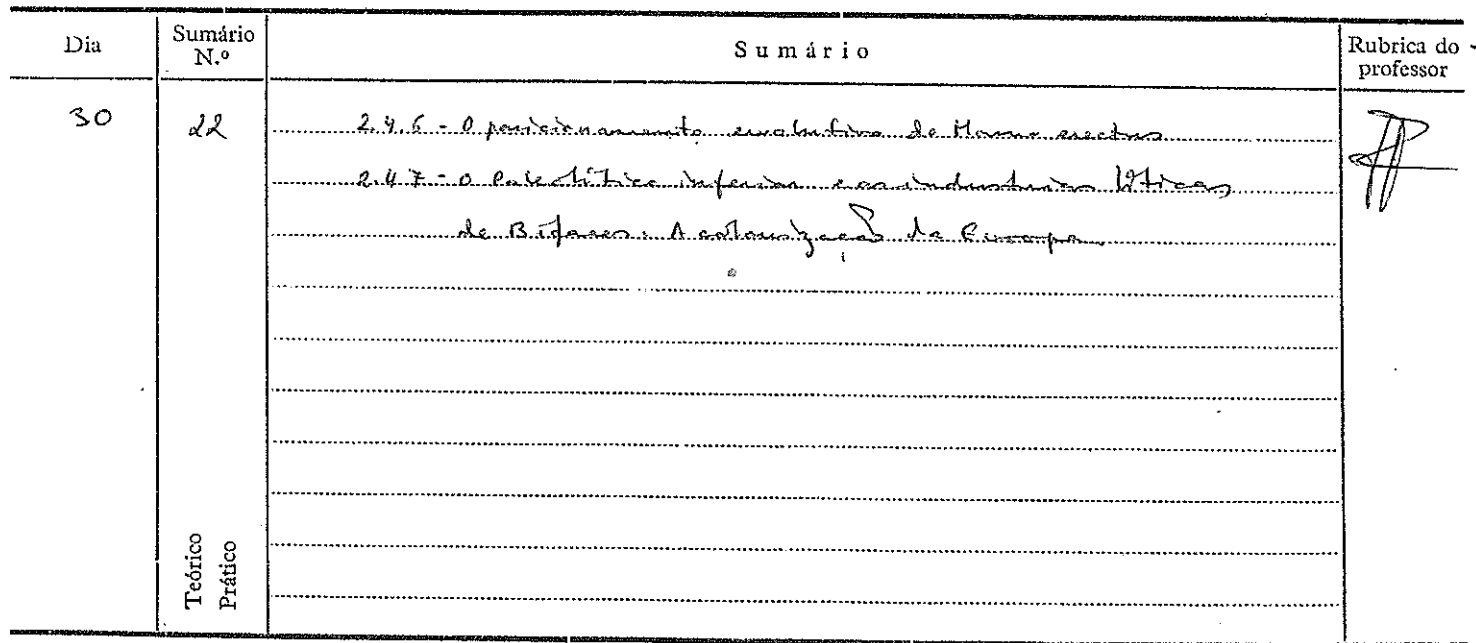 Dia
Sumário N.º
Sumário
Rubrica do professor
30
22
2.4.6 - O posicionamento evolutivo do Homo erectus
2.4.7 - O Paleolítico inferior e as industrias líticas
de Bifaces. A colonização da Europa
Teórico
Prático